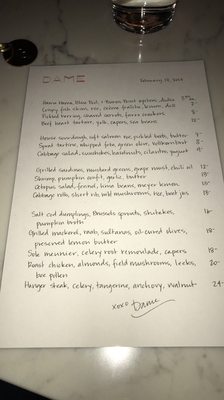 DAME
February 14, 2019
Hama Hama, Blue Pool, + Baron Point oysters,
Crispy fish skin, roe, crème fraîche, lemon, dill 7-
Pickled herring, charred carrots, farro crackers 8-
Beef heart tartare, yolk, capers, rice beans
House sourdough, soft salmon roe, pickled beets, butter 7-
Squid tartare, whipped feta, green olive, kohlrabi 8-
Cabbage salad, cucumbers, hazelnuts, cilantro, yogurt 9-
Grilled sardines, mustard greens, grape mosto, chili oil 12-
Shrimp, pumpkin confit, garlic, butter 15-
Octopus salad, fennel, lima beans, meyer lemon 15-
Cabbage rolls, short rib, wild mushrooms, rice, beet jus 13-
Salt cod dumplings, Brussels sprouts, shiitakes, 16-
pumpkin broth
Grilled mackerel, raab, sultanas, oil-cured olives, 18-
preserved lemon butter
Sole meuniere, celery root remoulade, capers 18-
Roast chicken, almonds, field mushrooms, leeks, 20-
bee pollen
Hanger steak, celery, tangerine, anchovy, walnut 24-
xoxo Dame